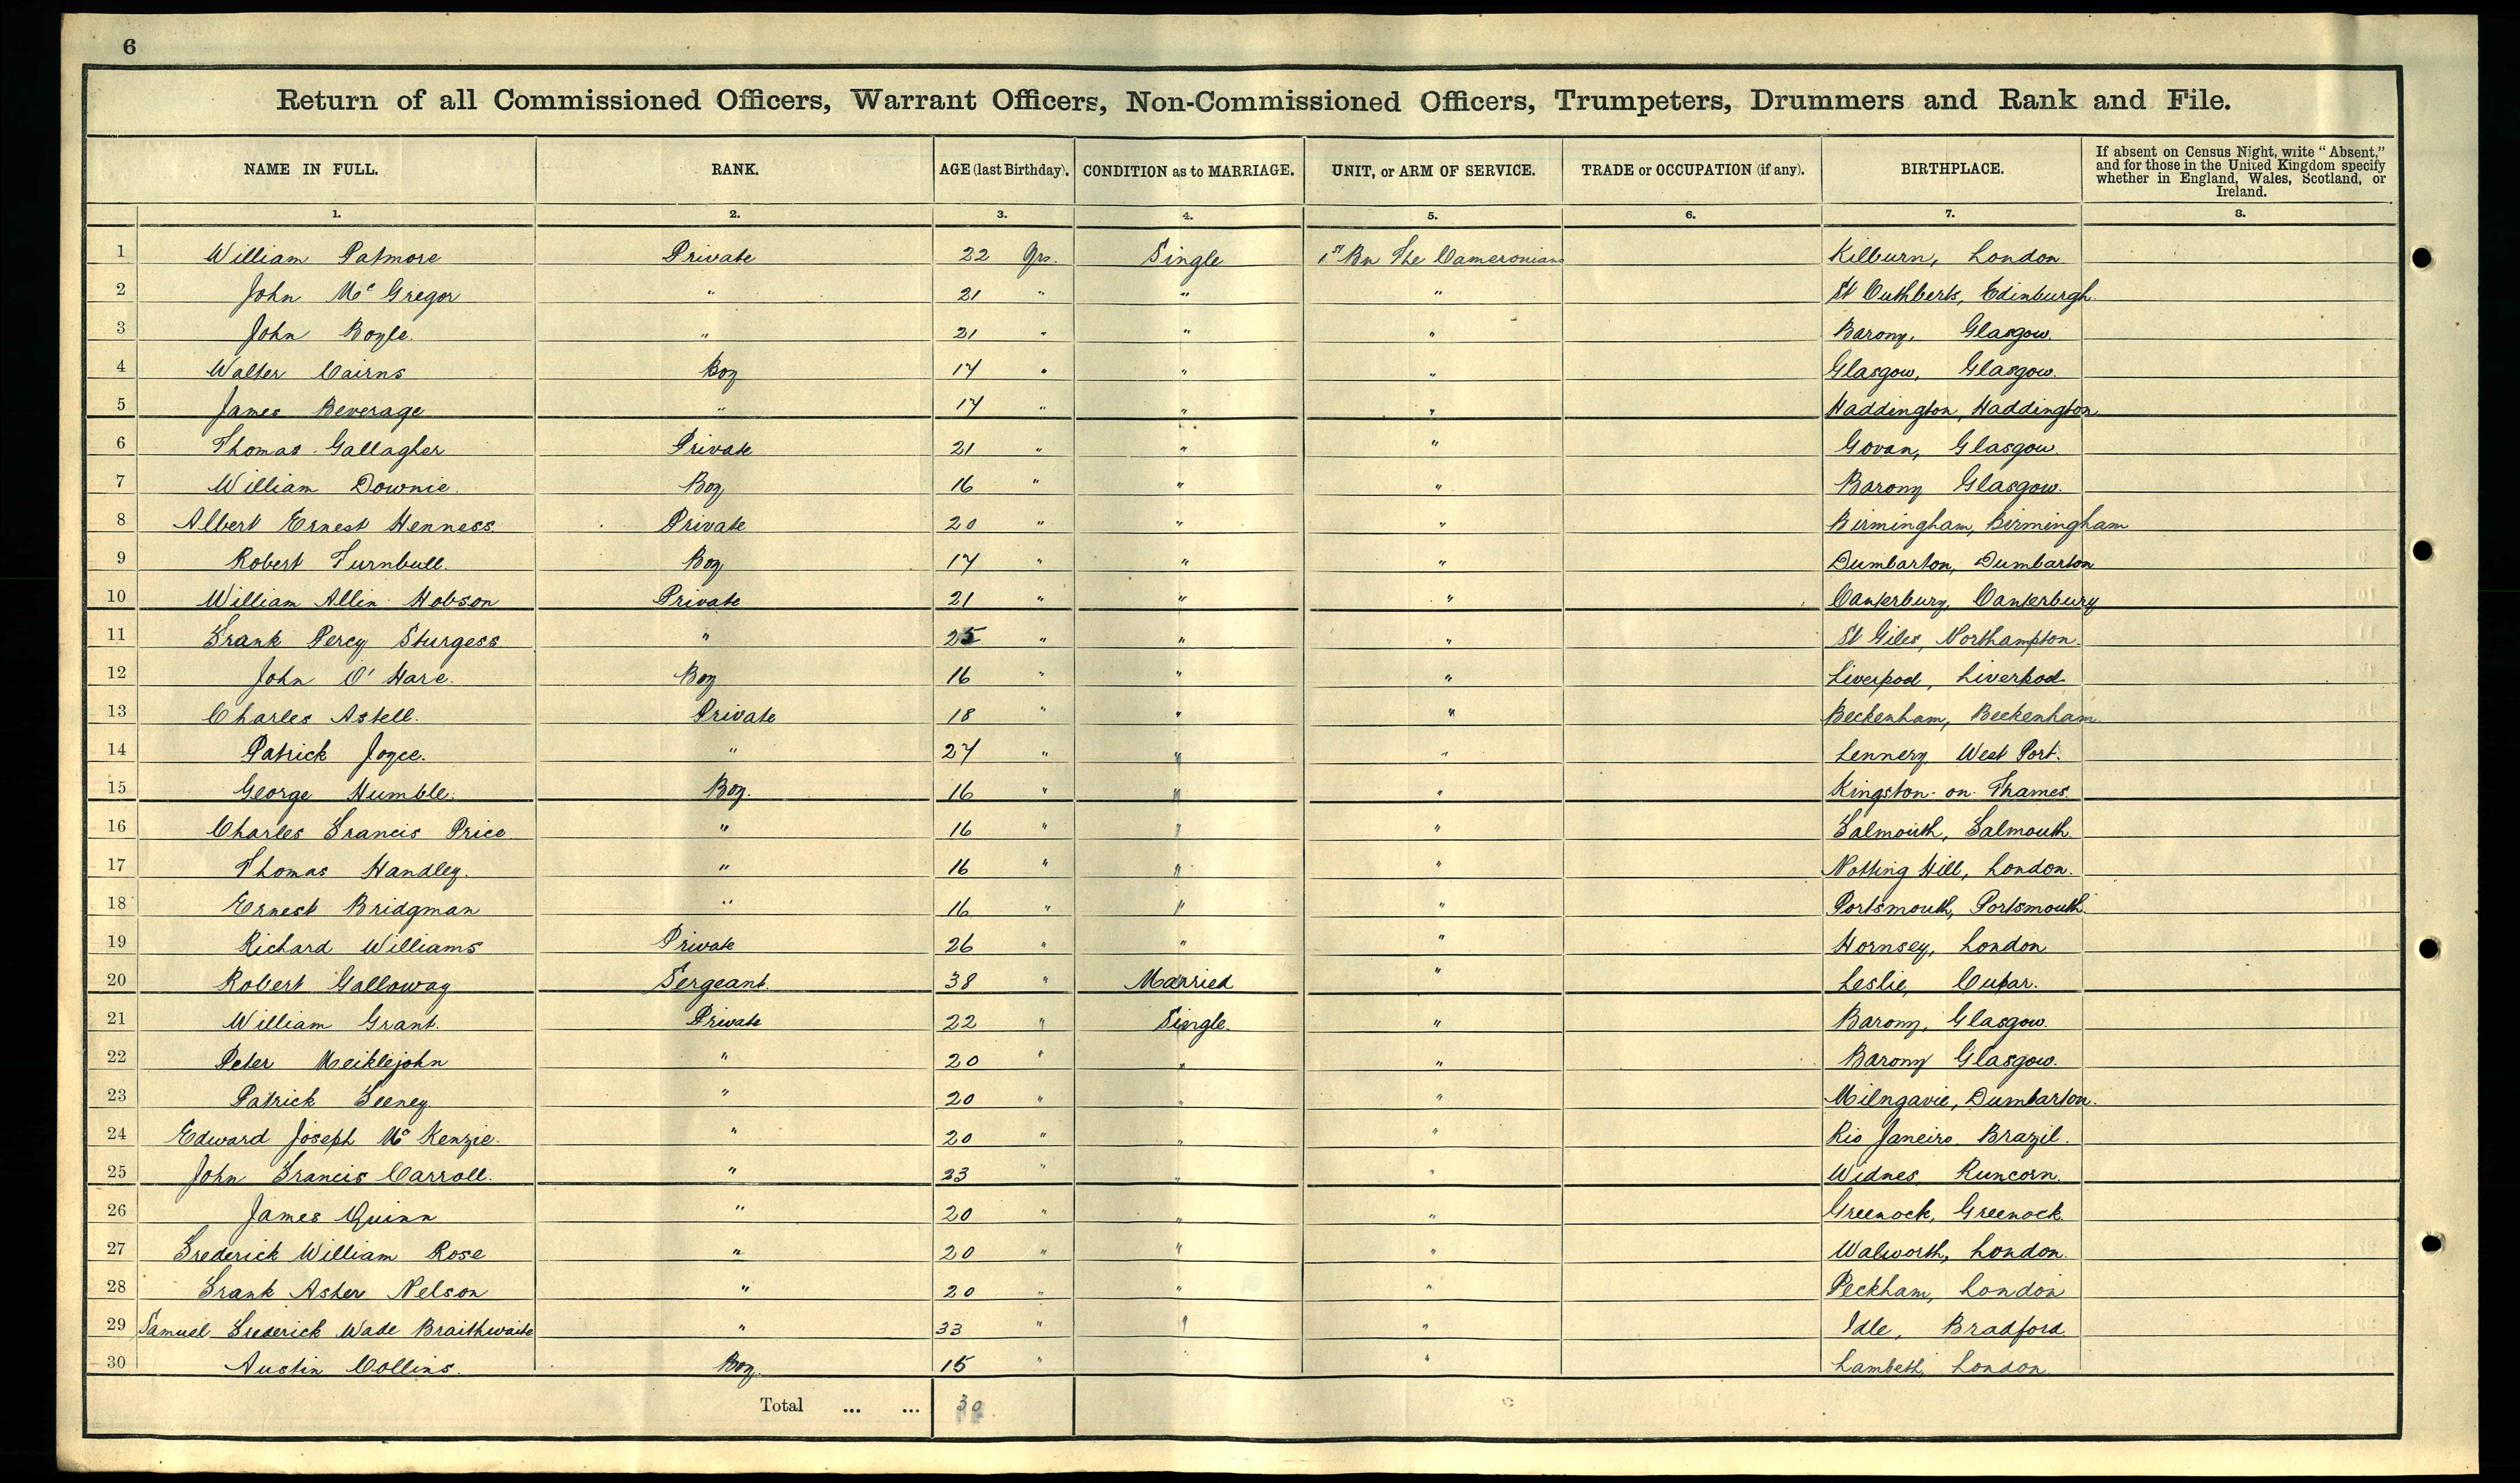 6
Return of all Commissioned Officers, Warrant Officers, Non-Commissioned Officers, Trumpeters, Drummers and Rank and File.
NAME IN FULL. RANK. AGE (last Birthday). CONDITION as to MARRIAGE. UNIT, or ARM OF SERVICE. TRADE or OCCUPATION (if any). BIRTHPLACE. If absent on Census Night, write "Absent," and for those in the United Kingdom specify whether in England, Wales, Scotland, or Ireland.
1. 2. 3. 4. 5. 6. 7. 8.
1 William Patmore Private 22 Yrs. Single 1st Bn The Cameronians Kilburn, London
2 John Mc Gregor " 21 " " " St Cuthberts, Edinburgh.
3 John Boyle. " 21 " " " Barony, Glasgow.
4 Walter Cairns Boy 17 " " " Glasgow, Glasgow.
5 James Beverage " 17 " " " Haddington, Haddington
6 Thomas Gallagher Private 21 " " " Govan, Glasgow.
7 William Downie. Boy 16 " " " Barony Glasgow.
8 Albert Ernest Henness. Private 20 " " " Birmingham, Birmingham
9 Robert Turnbull. Boy 17 " " " Dumbarton, Dumbarton
10 William Allin Hobson Private 21 " " " Canterbury, Canterbury
11 Frank Percy Sturgess " 25 " " " St Giles, Northampton.
12 John O'Hare. Boy 16 " " " Liverpool, Liverpool
13 Charles Astell. Private 18 " " " Beckenham, Beckenham.
14 Patrick Joyce. " 27 " " " Lennery West Port.
15 George Humble. Boy. 16 " " " Kingston-on-Thames.
16 Charles Francis Price " 16 " " " Falmouth, Falmouth.
17 Thomas Handley. " 16 " " " Notting Hill, London.
18 Ernest Bridgman " 16 " " " Portsmouth, Portsmouth.
19 Richard Williams Private 26 " " " Hornsey, London
20 Robert Galloway Sergeant. 38 " Married " Leslie, Cupar.
21 William Grant. Private 22 " Single. " Barony, Glasgow.
22 Peter Meiklejohn " 20 " " " Barony Glasgow.
23 Patrick Feeney. " 20 " " " Milngavie, Dumbarton.
24 Edward Joseph Mc Kenzie. " 20 " " " Rio Janeiro, Brazil.
25 John Francis Carroll. " 23 " " " Widnes, Runcorn.
26 James Quinn " 20 " " " Greenock, Greenock.
27 Frederick William Rose " 20 " " " Walworth, London.
28 Frank Asher Nelson " 20 " " " Peckham, London
29 Samuel Frederick Wade Braithwaite " 33 " " " Idle, Bradford.
30 Austin Collins. Boy. 15 " " " Lambeth, London.
Total ... ... 30